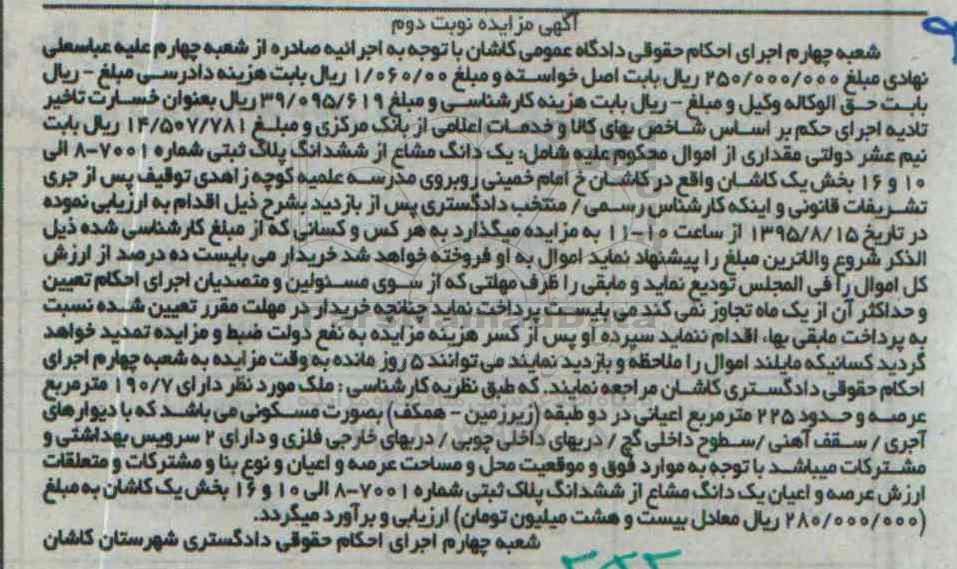 آگهی مزایده نوبت دوم
شعبه چهارم اجرای احکام حقوقی دادگاه عمومی کاشان با توجه به اجرائیه صادره از شعبه چهارم علیه عباسعلی
نهادی مبلغ ۲۵۰/۰۰۰/۰۰۰ ریال بابت اصل خواسته و مبلغ ۱/۰۶۰/۰۰ ریال بابت هزینه دادرسی مبلغ - ریال
بابت حق الوکاله وکیل و مبلغ - ریال بابت هزینه کارشناسی و مبلغ ۳۹/۰۹۵/۶۱۹ ریال بعنوان خسارت تاخیر
تادیه اجرای حکم بر اساس شاخص بهای کالا و خدمات اعلامی از بانک مرکزی و مبلغ ۱۴/۵۰۷/۷۸۱ ریال بابت
نیم عشر دولتی مقداری از اموال محکوم علیه شامل: یک دانگ مشاع از ششدانگ پلاک ثبتی شماره ۷۰۰۱-۸ الی
۱۰ و ۱۶ بخش یک کاشان واقع در کاشان خ امام خمینی روبروی مدرسه علمیه کوچه زاهدی توقیف پس از جری
تشریفات قانونی و اینکه کارشناس رسمی / منتخب دادگستری پس از بازدید بشرح ذیل اقدام به ارزیابی نموده
در تاریخ ۱۳۹۵/۸/۱۵ از ساعت ۱۰-۱۱ به مزایده میگذارد به هر کس و کسانی که از مبلغ کارشناسی شده ذیل
الذکر شروع والاترین مبلغ را پیشنهاد نماید اموال به او فروخته خواهد شد خریدار می بایست ده درصد از ارزش
کل اموال را فی المجلس تودیع نماید و مابقی را ظرف مهلتی که از سوی مسئولین و متصدیان اجرای احکام تعیین
و حداکثر آن از یک ماه تجاوز نمی کند می بایست پرداخت نماید چنانچه خریدار در مهلت مقرر تعیین شده نسبت
به پرداخت مابقی بها، اقدام ننماید سپرده او پس از کسر هزینه مزایده به نفع دولت ضبط و مزایده تمدید خواهد
گردید کسانیکه مایلند اموال را ملاحظه و بازدید نمایند می توانند ۵ روز مانده به وقت مزایده به شعبه چهارم اجرای
احکام حقوقی دادگستری کاشان مراجعه نمایند. که طبق نظریه کارشناسی: ملک مورد نظر دارای ۱۹۰/۷ مترمربع
عرصه و حدود ۲۲۵ مترمربع اعیانی در دو طبقه (زیرزمین - همکف) بصورت مسکونی می باشد که با دیوارهای
آجری / سقف آهنی /سطوح داخلی گچ / دربهای داخلی چوبی / دربهای خارجی فلزی و دارای ۲ سرویس بهداشتی و
مشترکات میباشد با توجه به موارد فوق و موقعیت محل و مساحت عرصه و اعیان و نوع بنا و مشترکات و متعلقات
ارزش عرصه و اعیان یک دانگ مشاع از ششدانگ پلاک ثبتی شماره ۷۰۰۱-۸ الی ۱۰ و ۱۶ بخش یک کاشان به مبلغ
(۲۸۰/۰۰۰/۰۰۰ ریال معادل بیست و هشت میلیون تومان) ارزیابی و برآورد میگردد.
شعبه چهارم اجرای احکام حقوقی دادگستری شهرستان کاشان